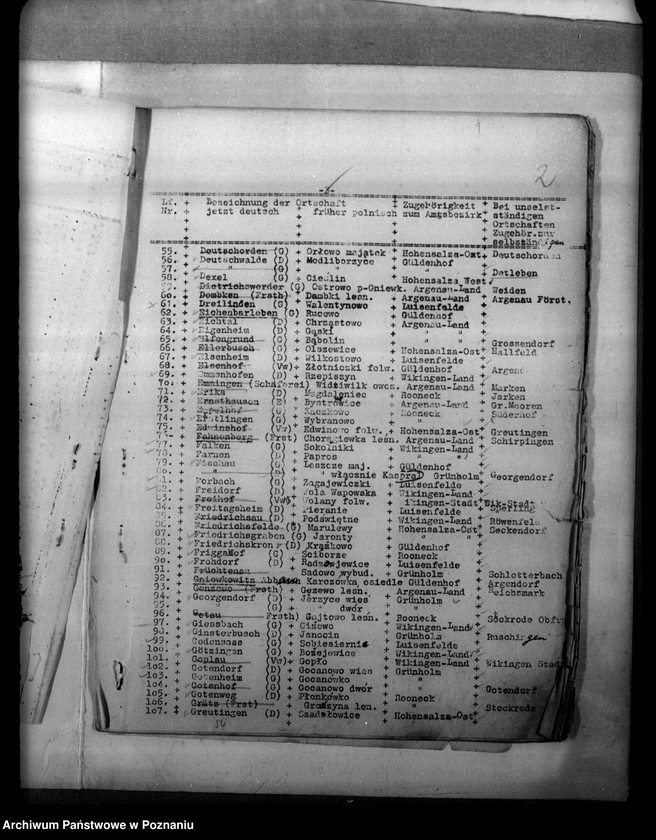 2
-3-
Lf. + Bezeichnung der Ortschaft + Zugehörigkeit + Bei unselst-
Nr. + jetzt deutsch + früher polnisch + zum Amtsbezirk + ständigen
Ortschaften
Zugehör.zur
selbständigen
55. + Deutschorden (G) + Orłowo majątek + Hohensalza-Ost + Deutschorden
56. + Deutschwalde (D) + Modliborzyce + Güldenhof
57. + " (G) + " + " + Detleben
58. + Dexel (G) + Cieślin + Hohensalza West
59. + Dietrichswerder (G) Ostrowo p-Gniewk. Argenau-Land Weiden
60. + Dombken (Frsth) + Dąbki leśn. + Argenau-Land + Argenau Först.
61. + Dreilinden (G) + Walentynowo + Luisenfelde
62. + Eichenbarleben (G) + Rucewo + Güldenhof
63. + Eichtal (D) + Chrząstowo + Argenau-Land
64. + Eigenheim (D) + Gąski + "
65. + Elfengrund (G) + Bąbolin + " + Grossendorf
66. + Ellerbusch (G) + Olszewice + Hohensalza-Ost + Hallfeld
67. + Elsenheim (D) + Wilkostowo + Luisenfelde
68. + Elsenhof (Vw) + Złotnicki folw. + Güldenhof
69. + (D) + Rzepiszyn + Wikingen-Land
70. + Emmingen (Schäferei) Widziwilk owcz. Argenau-Land Marken
71. + Erika (D) + Magdaleniec + Rooneck + Jarken
72. + Ernsthausen + Bystrowice + Argenau-Land + Gr.Mooren
73. + + Kaczkowo + Rooneck
74. + (G) + Wybranowo + "
75. + Edwinshof (Vw) + Edwinowo folw. + Hohensalza-Ost + Greutingen
Fahnenberg (Frst) Chorągiewka leśn. Argenau-Land Schirpingen
77. + Falken (G) + Sokolniki + Wikingen-Land
78. + Farnen (D) + Papros + " "
79. + Fischau (G) + Leszcze maj. + Güldenhof
włącznie Kaspral Grünholm + Georgendorf
81. + Forbach (G) + Zagajewiczki + Luisenfelde
82. + Freidorf (D) + Wola Wapowska + Wikingen-Land
83. + Freihof (Vw) + Wolany folw. + Wikingen-Stadt Wik-Stadt
84. + Freitagsheim (D) + Pieranie + Luisenfelde + Sperling
85. + Friedrichau (D) + Podświętne + Wikingen-Land + Röwenfeld
86. + Friedrichsfelde (G) Marulewy + Hohensalza-Ost + Seckendorf
87. + Friedrichsgraben (G) Jaronty + " "
88. + Friedrichskron (D) Krążkowo + Güldenhof
89. + Friggahof (G) + Ściborze + Rooneck
90. + Frohdorf (D) + Radziejewice + Luisenfelde
91. + Früchtenau + Sadowo wybud. + Grünholm + Schlotterbach
92. + Gniewkowitz Abbau Karczówka osiedle Güldenhof + Argendorf
93. + Genzowo (Frsth) + Gęzewo leśn. + Argenau-Land + Reichsmark
94. + Georgendorf (D) + Jerzyce wieś + Grünholm
95. + " (G) + " dwór + "
96. + Getau Frsth) Gajtowo leśn. + Rooneck + Sockrode Obfr
97. + Giessbach (G) + Giżewo + Wikingen-Land
98. + Ginsterbusch (D) + Janocin + Grünholm + Ruschingen
99. + Godensass (G) + Sobiesiernie + Luisenfelde
100. + Götzingen (G) + Bożejewice + Wikingen-Land
101. + Goplau (Vw) + Gopło + Wikingen-Land + Wikingen Stadt
102. + Gotendorf (D) + Gocanowo wieś + Grünholm
103. + Gotenheim (G) + Gocanówko + "
104. + Gotenhof (G) + Gocanowo dwór + " + Gotendorf
105. + Gotenweg (D) + Płonkówko + Rooneck
106. + Grätz (Frst) + Grodzyna len. + " + Stockrode
107. + Greutingen (D) + Szadłowice + Hohensalza-Ost
54
Archiwum Państwowe w Poznaniu